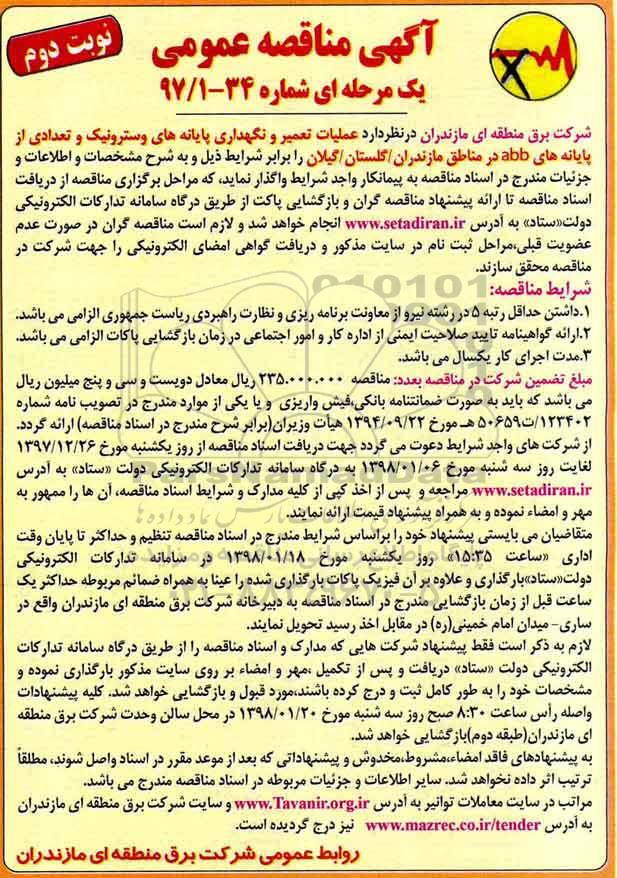 نوبت دوم
آگهی مناقصه عمومی
یک مرحله ای شماره ۳۴-۹۷/۱
شرکت برق منطقه ای مازندران درنظردارد عملیات تعمیر و نگهداری پایانه های وسترونیک و تعدادی از
پایانه های abb در مناطق مازندران/گلستان/گیلان را برابر شرایط ذیل و به شرح مشخصات و اطلاعات و
جزئیات مندرج در اسناد مناقصه به پیمانکار واجد شرایط واگذار نماید، که مراحل برگزاری مناقصه از دریافت
اسناد مناقصه تا ارائه پیشنهاد مناقصه گران و بازگشایی پاکت از طریق درگاه سامانه تدارکات الکترونیکی
دولت«ستاد» به آدرس www.setadiran.ir انجام خواهد شد و لازم است مناقصه گران در صورت عدم
عضویت قبلی،مراحل ثبت نام در سایت مذکور و دریافت گواهی امضای الکترونیکی را جهت شرکت در
مناقصه محقق سازند.
شرایط مناقصه:
۱.داشتن حداقل رتبه ۵ در رشته نیرو از معاونت برنامه ریزی و نظارت راهبردی ریاست جمهوری الزامی می باشد.
۲.ارائه گواهینامه تایید صلاحیت ایمنی از اداره کار و امور اجتماعی در زمان بازگشایی پاکات الزامی می باشد.
۳.مدت اجرای کار یکسال می باشد.
مبلغ تضمین شرکت در مناقصه بعدد: مناقصه ۲۳۵.۰۰۰.۰۰۰ ریال معادل دویست و سی و پنج میلیون ریال
می باشد که باید به صورت ضمانتنامه بانکی،فیش واریزی و یا یکی از موارد مندرج در تصویب نامه شماره
۱۲۳۴۰۲/ت۵۰۶۵۹ هـ مورخ ۱۳۹۴/۰۹/۲۲ هیأت وزیران(برابر شرح مندرج در اسناد مناقصه) ارائه گردد.
از شرکت های واجد شرایط دعوت می گردد جهت دریافت اسناد مناقصه از روز یکشنبه مورخ ۱۳۹۷/۱۲/۲۶
لغایت روز سه شنبه مورخ ۱۳۹۸/۰۱/۰۶ به درگاه سامانه تدارکات الکترونیکی دولت «ستاد» به آدرس
www.setadiran.ir مراجعه و پس از اخذ کپی از کلیه مدارک و شرایط اسناد مناقصه، آن ها را ممهور به
مهر و امضاء نموده و به همراه پیشنهاد قیمت ارائه نمایند.
متقاضیان می بایستی پیشنهاد خود را براساس شرایط مندرج در اسناد مناقصه تنظیم و حداکثر تا پایان وقت
اداری «ساعت ۱۵:۳۵» روز یکشنبه مورخ ۱۳۹۸/۰۱/۱۸ در سامانه تدارکات الکترونیکی
دولت«ستاد»بارگذاری و علاوه بر آن فیزیک پاکات بارگذاری شده را عینا به همراه ضمائم مربوطه حداکثر یک
ساعت قبل از زمان بازگشایی مندرج در اسناد مناقصه به دبیرخانه شرکت برق منطقه ای مازندران واقع در
ساری- میدان امام خمینی(ره) در مقابل اخذ رسید تحویل نمایند.
لازم به ذکر است فقط پیشنهاد شرکت هایی که مدارک و اسناد مناقصه را از طریق درگاه سامانه تدارکات
الکترونیکی دولت «ستاد» دریافت و پس از تکمیل ،مهر و امضاء بر روی سایت مذکور بارگذاری نموده و
مشخصات خود را به طور کامل ثبت و درج کرده باشند،مورد قبول و بازگشایی خواهد شد. کلیه پیشنهادات
واصله رأس ساعت ۸:۳۰ صبح روز سه شنبه مورخ ۱۳۹۸/۰۱/۲۰ در محل سالن وحدت شرکت برق منطقه
ای مازندران(طبقه دوم)بازگشایی خواهد شد.
به پیشنهادهای فاقد امضاء،مشروط،مخدوش و پیشنهاداتی که بعد از موعد مقرر در اسناد واصل شوند، مطلقاً
ترتیب اثر داده نخواهد شد. سایر اطلاعات و جزئیات مربوطه در اسناد مناقصه مندرج می باشد.
مراتب در سایت معاملات توانیر به آدرس www.Tavanir.org.ir و سایت شرکت برق منطقه ای مازندران
به آدرس www.mazrec.co.ir/tender نیز درج گردیده است.
روابط عمومی شرکت برق منطقه ای مازندران